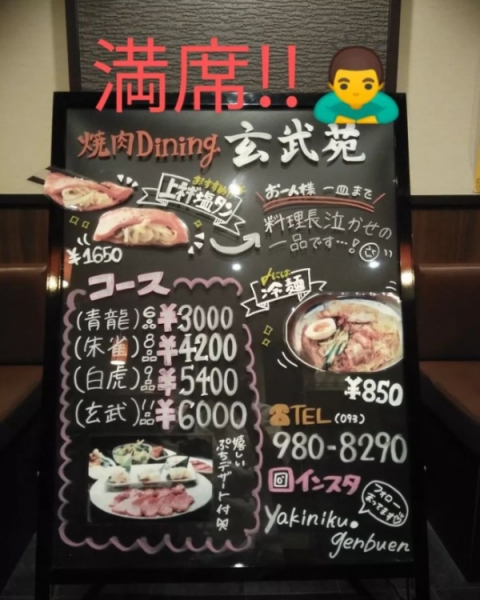 満席!!
焼肉Dining 玄武苑
おすすめ
上ネギ塩タン
¥1650
お一人様 一皿まで
料理長泣かせの
一品です…!
コース
(青龍)6品¥3000
(朱雀)8品¥4200
(白虎)9品¥5400
(玄武)11品¥6000
嬉しい
ぷちデザート付
〆には
冷麺
¥850
☎TEL (093)
980-8290
インスタ
フォロー
まってます
yakiniku.
genbuen